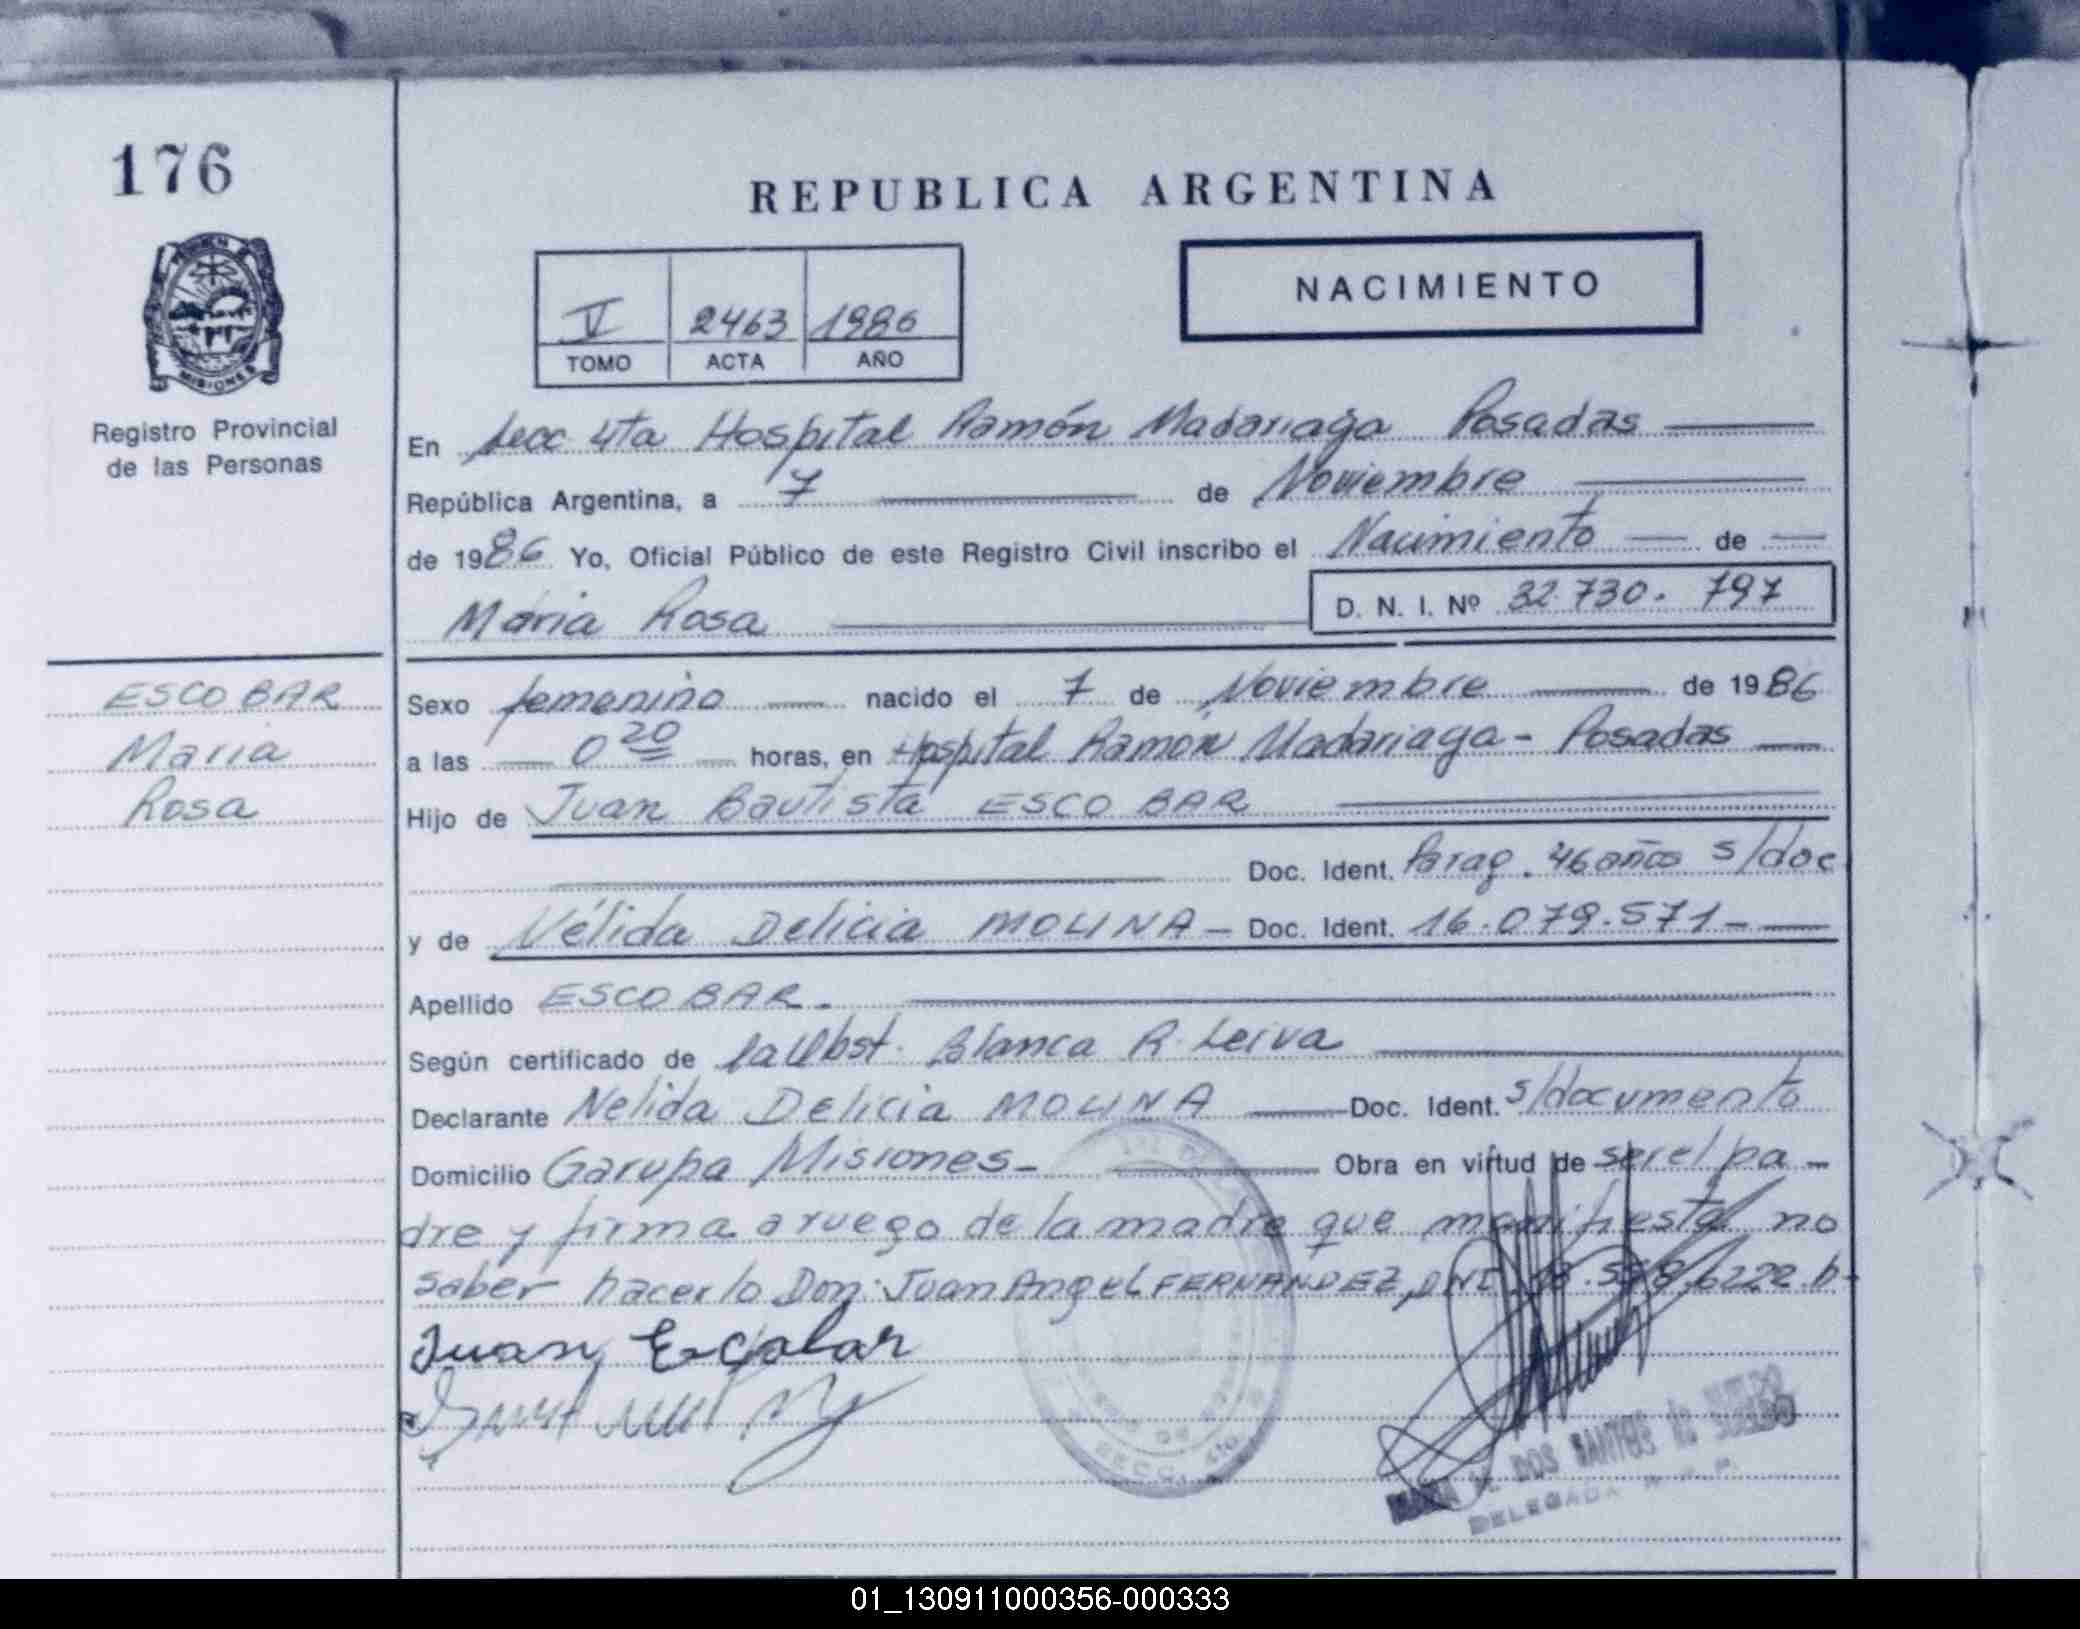 176
REPUBLICA ARGENTINA
NACIMIENTO
V 2463 1986
TOMO ACTA AÑO
MISIONES
Registro Provincial
de las Personas
En Secc 4ta Hospital Ramón Madariaga Posadas
República Argentina, a 7 de Noviembre
de 1986 Yo, Oficial Público de este Registro Civil inscribo el Nacimiento de
Maria Rosa D. N. I. Nº 32.730.797
ESCOBAR
Maria
Rosa
Sexo femenino nacido el 7 de Noviembre de 1986
a las 0 20 horas, en Hospital Ramón Madariaga - Posadas
Hijo de Juan Bautista ESCOBAR
Doc. Ident. Parag. 46 años s/doc
y de Nélida Delicia MOLINA - Doc. Ident. 16.079.571-
Apellido ESCOBAR.
Según certificado de la Obst. Blanca R. Leiva
Declarante Nelida Delicia MOLINA Doc. Ident. s/documento
Domicilio Garupa Misiones- Obra en virtud de ser el pa-
dre y firma a ruego de la madre que manifiesta no
saber hacerlo Don: Juan Angel FERNANDEZ, DNI
Juan Escobar
DOS SANTOS de
DELEGADA
01_130911000356-000333